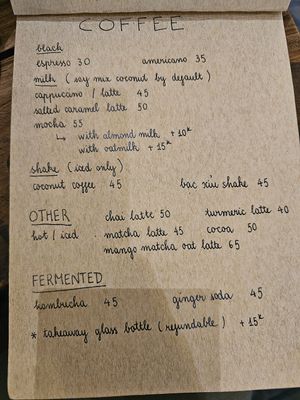 COFFEE
black
espresso 30 americano 35
milk (soy mix coconut by default)
cappucano / latte 45
salted caramel latte 50
mocha 55
↳ with almond milk + 10ᵏ
with oatmilk + 15ᵏ
shake (iced only)
coconut coffee 45 bac xiu shake 45
OTHER chai latte 50 turmeric latte 40
hot / iced matcha latte 45 cocoa 50
mango matcha oat latte 65
FERMENTED
kombucha 45 ginger soda 45
* takeaway glass bottle (refundable) + 15ᵏ